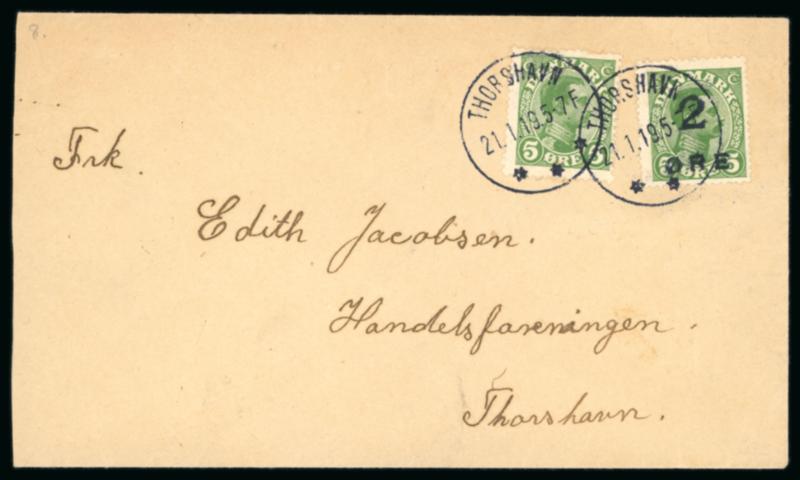 8.
THORSHAVN
21.1.19.5-7F
DANMARK
5 ØRE 5
THORSHAVN
21.1.19.5-
DANMARK
2
ØRE
5
Frk.
Edith Jacobsen.
Handelsforeningen.
Thorshavn.